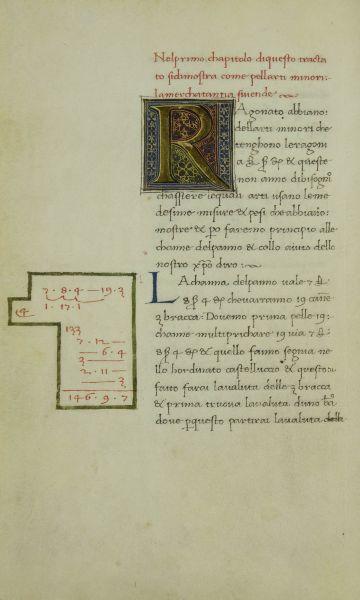 Nel primo chapitolo di questo tracta
to si dimostra come pell arti minori:
la merchatantia si vende
RAgonato abbiano:
dell arti minori che
tenghono le ragoni
a £ ẞ & et queste
non anno di bisogn̄
chassiere lequali arti usano le me
desime misure & pesi che abbiamo:
mostre & ꝑo faremo principio alle
channe del panno & collo aiuto dello
nostro xp̄o diro:
LA channa del panno vale 7 £
8 ẞ 4 & chevarranno 19 canne
3 braccia: Dovemo prima pelle 19:
channe multiprichare 19 via 7 £:
8 ẞ 4 & quello fanno segnia ne
llo hordinato castelluccio & questo:
fatto farai la valuta delle 3 bracca
& prima truova la valuta duno br̄a
dove ꝑ questo partirai la valuta della
7 · 8 · 4 — 19 · 3
1 · 17 · 1
133
7 · 12 —
— 6 · 4
3 —
2 · 11 —
— 3
146 · 9 · 7